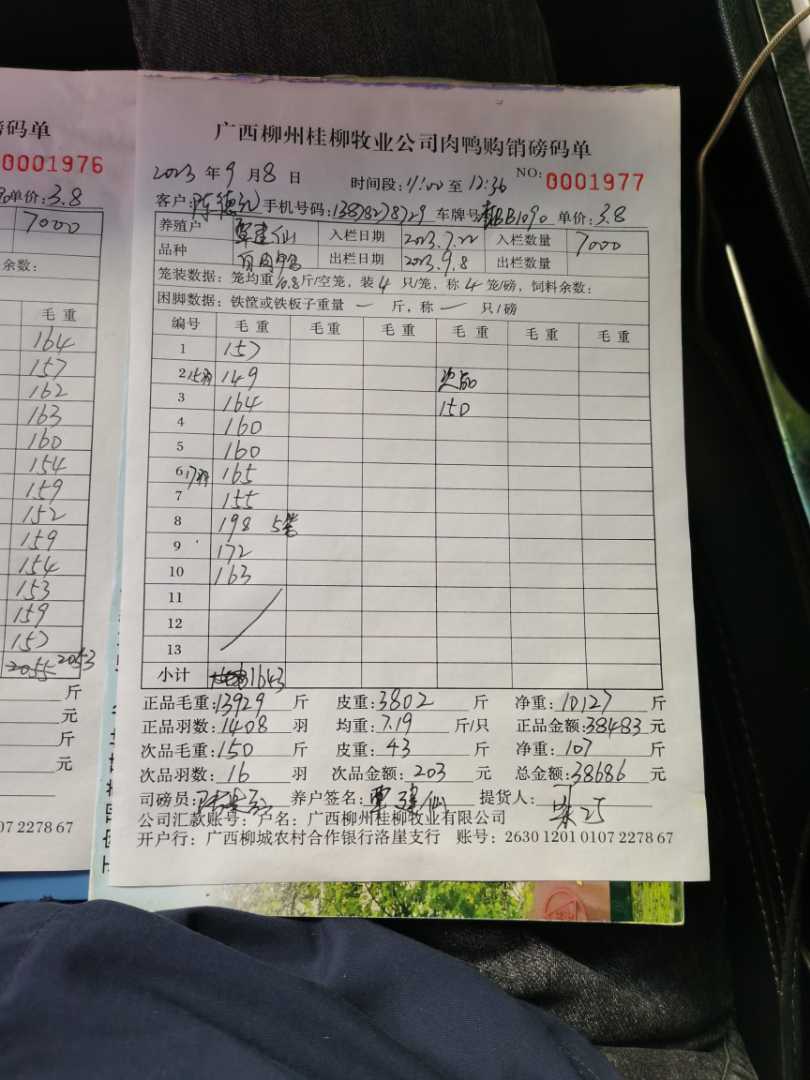 磅码单
0001976
单价:3.8
7000
余数:
毛重
164
157
162
163
160
154
159
152
159
154
153
159
157
2055 2053
斤
元
斤
元
07 2278 67
广西柳州桂柳牧业公司肉鸭购销磅码单
2023 年 9 月 8 日 时间段: 11:00 至 12:36 NO: 0001977
客户: 陈德 手机号码: 13878278729 车牌号 B1090 单价: 3.8
养殖户 覃建仙 入栏日期 2023.7.22 入栏数量 7000
品种 白肉鸭 出栏日期 2023.9.8 出栏数量
笼装数据: 笼均重 10.8 斤/空笼, 装 4 只/笼, 称 4 笼/磅, 饲料余数:
困脚数据: 铁筐或铁板子重量 一 斤, 称 一 只/磅
编号 毛重 毛重 毛重 毛重 毛重 毛重
1 157
2 15羽 149 次品
3 164 150
4 160
5 160
6 17羽 165
7 155
8 198 5笼
9 172
10 163
11
12
13
小计 1643
正品毛重: 13929 斤 皮重: 3802 斤 净重: 10127 斤
正品羽数: 1408 羽 均重: 7.19 斤/只 正品金额: 38483 元
次品毛重: 150 斤 皮重: 43 斤 净重: 107 斤
次品羽数: 16 羽 次品金额: 203 元 总金额: 38686 元
司磅员: 养户签名: 覃建仙 提货人:
公司汇款账号: 户名: 广西柳州桂柳牧业有限公司
开户行: 广西柳城农村合作银行洛崖支行 账号: 2630 1201 0107 2278 67